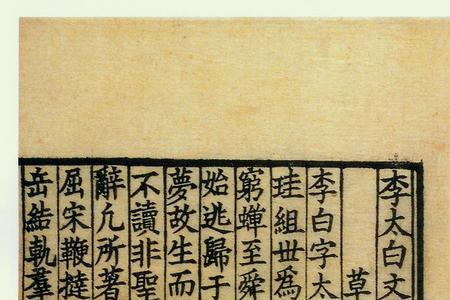 李太白文
草
李白字太
珪組世為
窮蟬至舜
始逃歸于
夢故生而
不讀非聖
辭凢所著
屈宋鞭撻
岳結軌羣